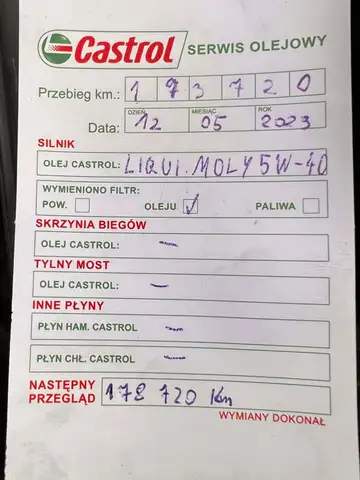 Castrol SERWIS OLEJOWY
Przebieg km.: 1 7 3 7 2 0
DZIEŃ MIESIĄC ROK
Data: 12 05 2023
SILNIK
OLEJ CASTROL: LIQUI.MOLY 5W-40
WYMIENIONO FILTR:
POW. OLEJU PALIWA
SKRZYNIA BIEGÓW
OLEJ CASTROL: -
TYLNY MOST
OLEJ CASTROL: -
INNE PŁYNY
PŁYN HAM. CASTROL -
PŁYN CHŁ. CASTROL -
NASTĘPNY PRZEGLĄD 178 720 Km
WYMIANY DOKONAŁ